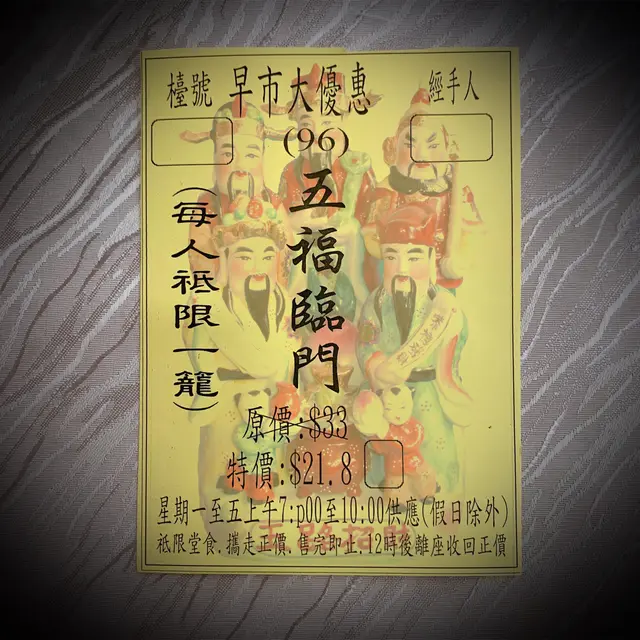 檯號 早市大優惠 經手人
(96)
五福臨門
(每人祗限一籠)
原價:$33
特價:$21.8
星期一至五上午7:p00至10:00供應(假日除外)
祗限堂食,攜走正價,售完即止,12時後離座收回正價